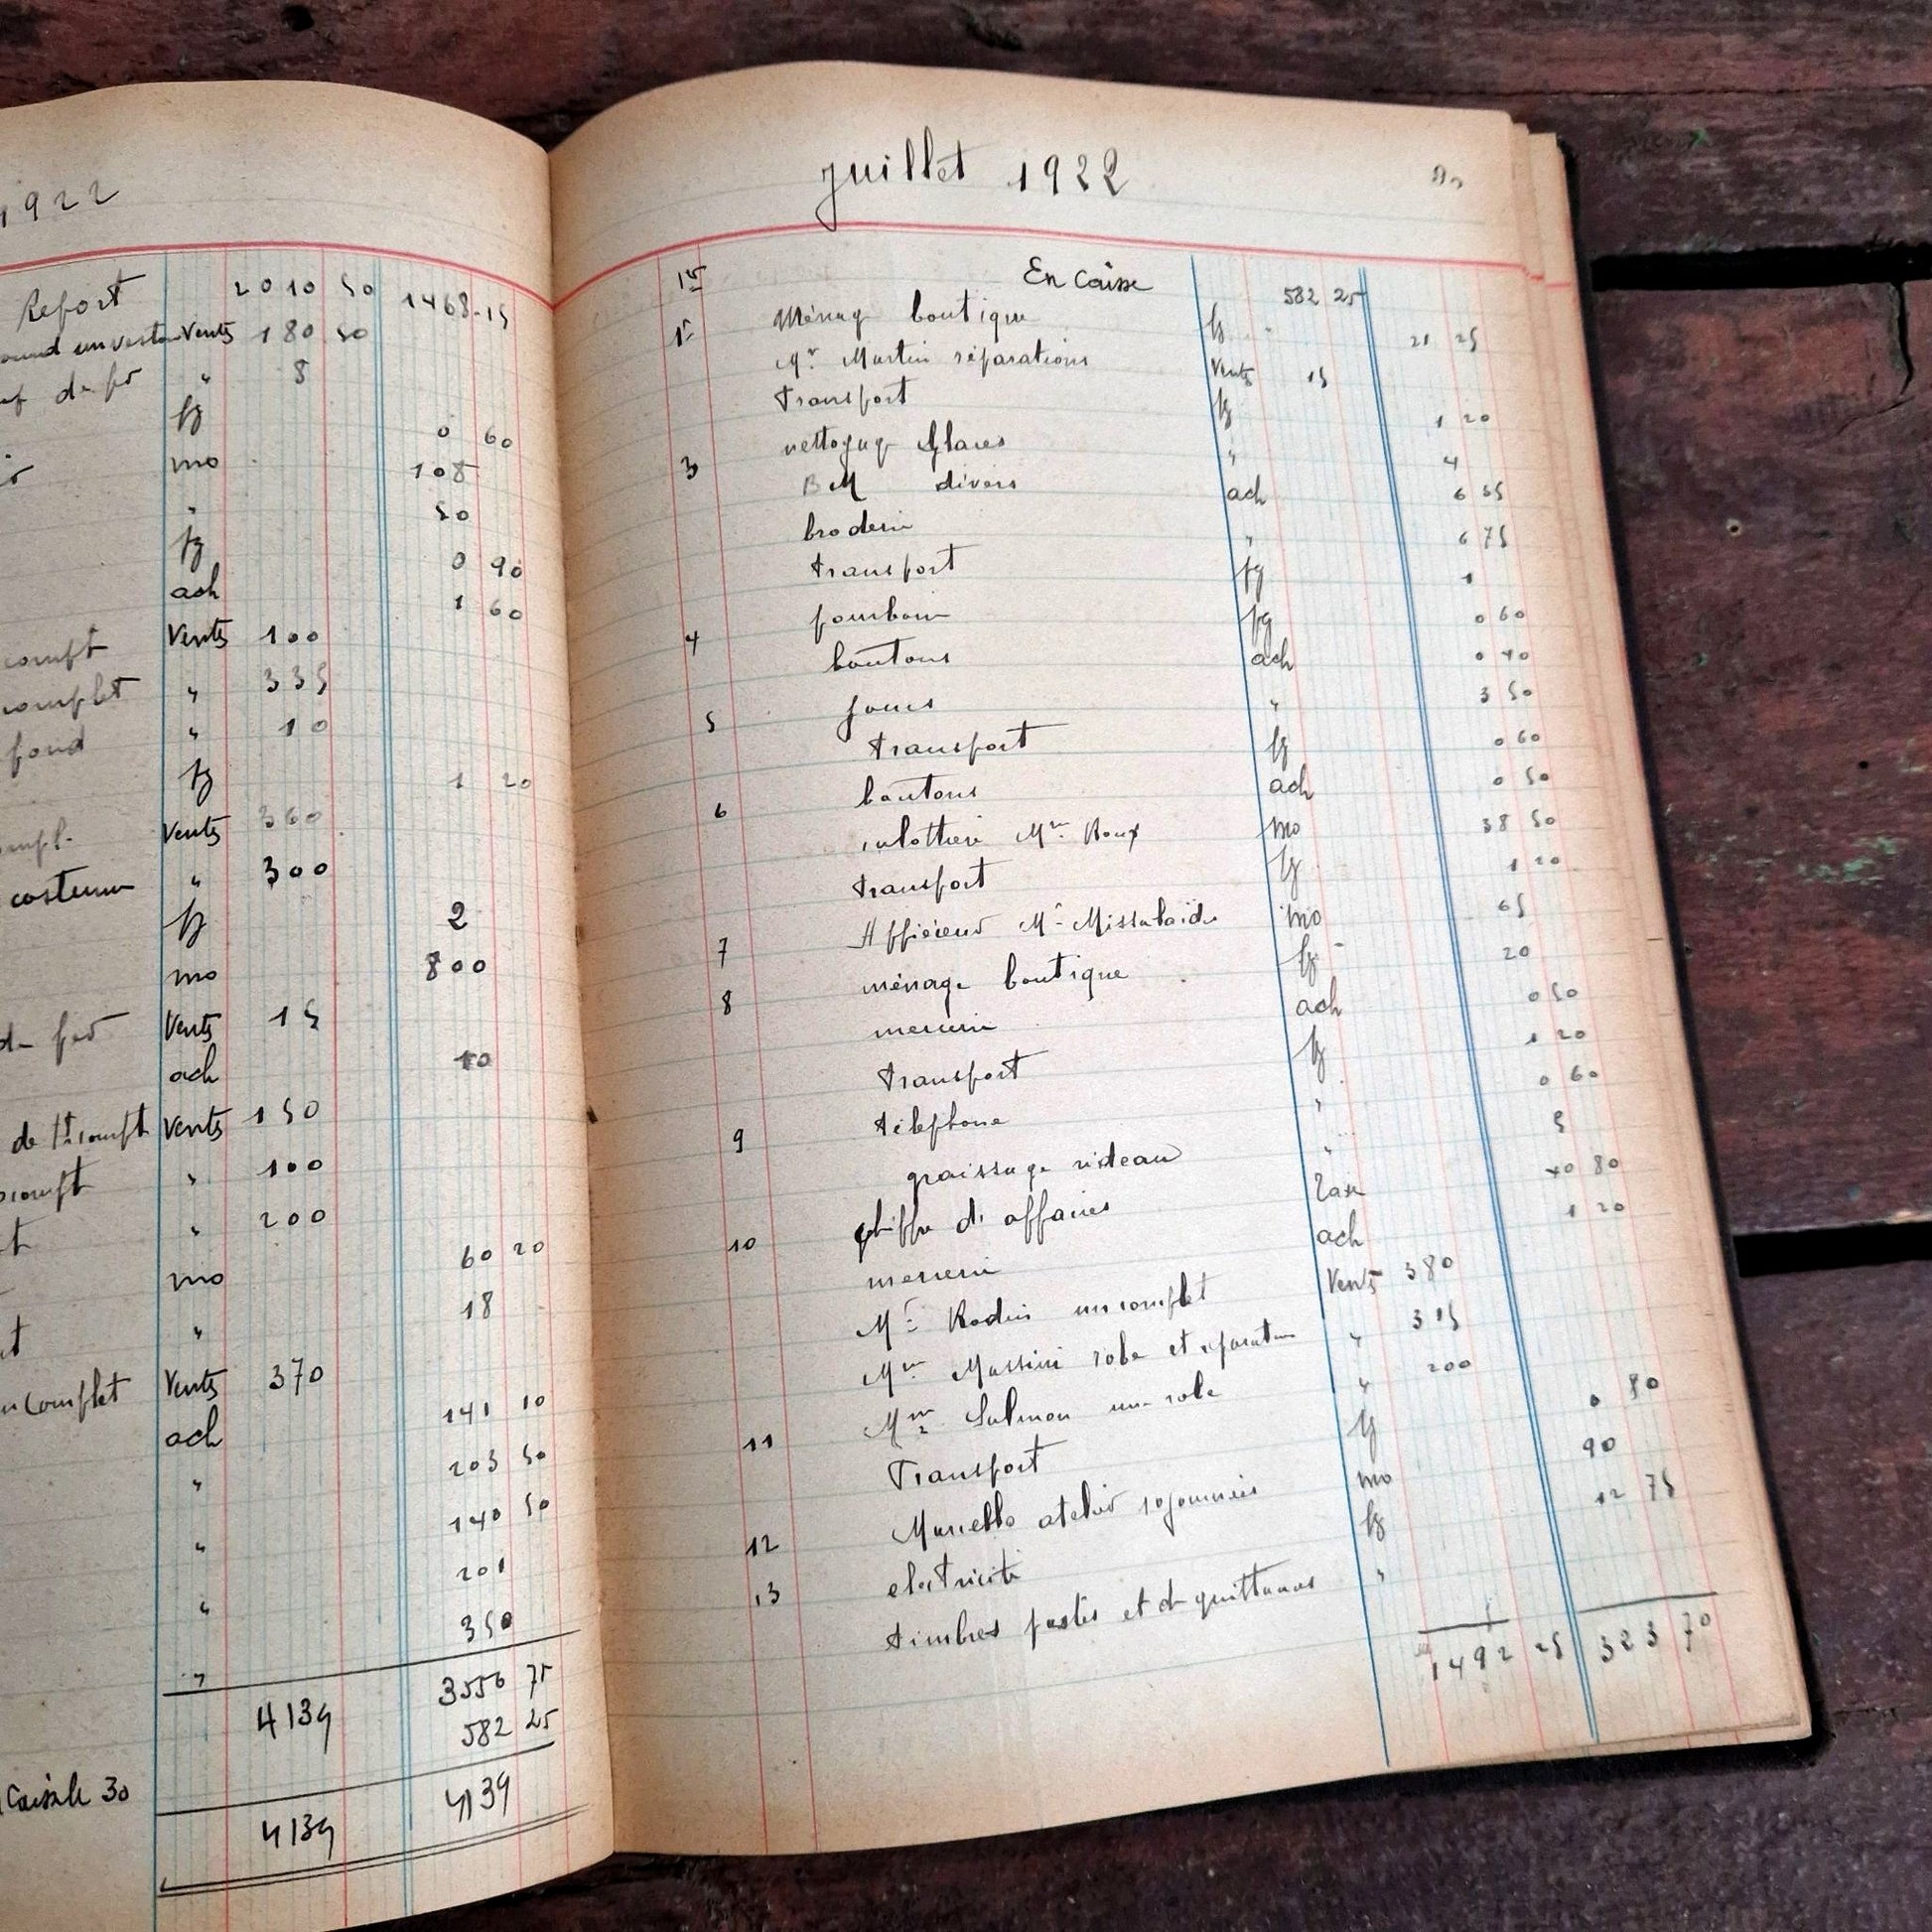 1922
Report 2010 50 1468.15
Vents 180 50
de fer " 8
fg 0 60
mo 108
" 50
fg 0 90
ach 1 60
compt Vents 100
complet " 335
fond " 10
fg 1 20
Vents 360
costume " 300
fg 2
mo 800
de fer Vents 15
ach 10
de Vents 150
" 100
" 200
mo 60 20
" 18
complet Vents 370
ach 141 10
" 203 50
" 140 50
" 201
" 350
4139 3556 75
582 25
Caisse le 30 4139
4139
juillet 1922
1er En Caisse 582 25
1er Ménage boutique fg 21 25
Mr Martin réparations Vents 15
Transport fg 1 20
nettoyage Glaces " 4
3 BM divers ach 6 55
broderie " 6 75
transport fg 1
pourboire fg 0 60
4 boutons ach 0 40
jours " 3 50
5 transport fg 0 60
boutons ach 0 50
6 culottière Mme Roux mo 38 50
transport fg 1 20
Mr mo 65
7 ménage boutique fg 20
8 mercerie ach 0 50
transport fg 1 20
téléphone " 0 60
9 graissage rideau " 5
chiffre d'affaires Taxe 40 80
10 mercerie ach 1 20
Mr Rodin un complet Vents 380
Mme Massini robe et réparation " 315
Mme Salmon une robe " 200
11 Transport fg 0 80
Marcelle atelier 10 journées mo 90
12 electricité fg 12 75
13 timbres postes et de quittances "
1492 25 323 70